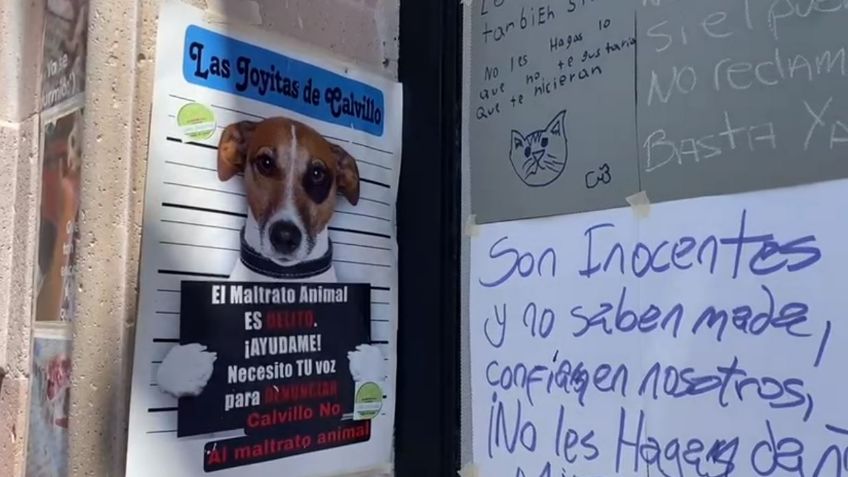 Las Joyitas de Calvillo
El Maltrato Animal
ES DELITO.
¡AYUDAME!
Necesito TU voz
para DENUNCIAR
Calvillo No
Al maltrato animal
también
No les Hagas lo
que no te gustaria
Que te hicieran
No reclam
BASTA YA
Son Inocentes
y no saben made,
confian en nosotros,
¡No les Hagan